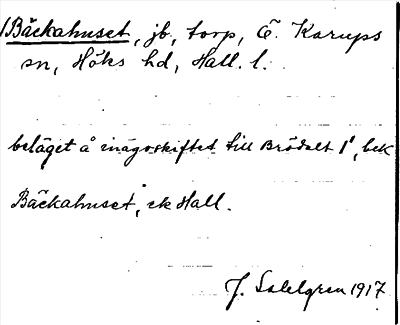 1) Bäckahuset, jb, torp, Ö. Karups
sn, Höks hd, Hall. l.
beläget å inägoskiftet till Brödalt 1¹, bek
Bäckahuset, ek Hall.
J. Sahlgren 1917